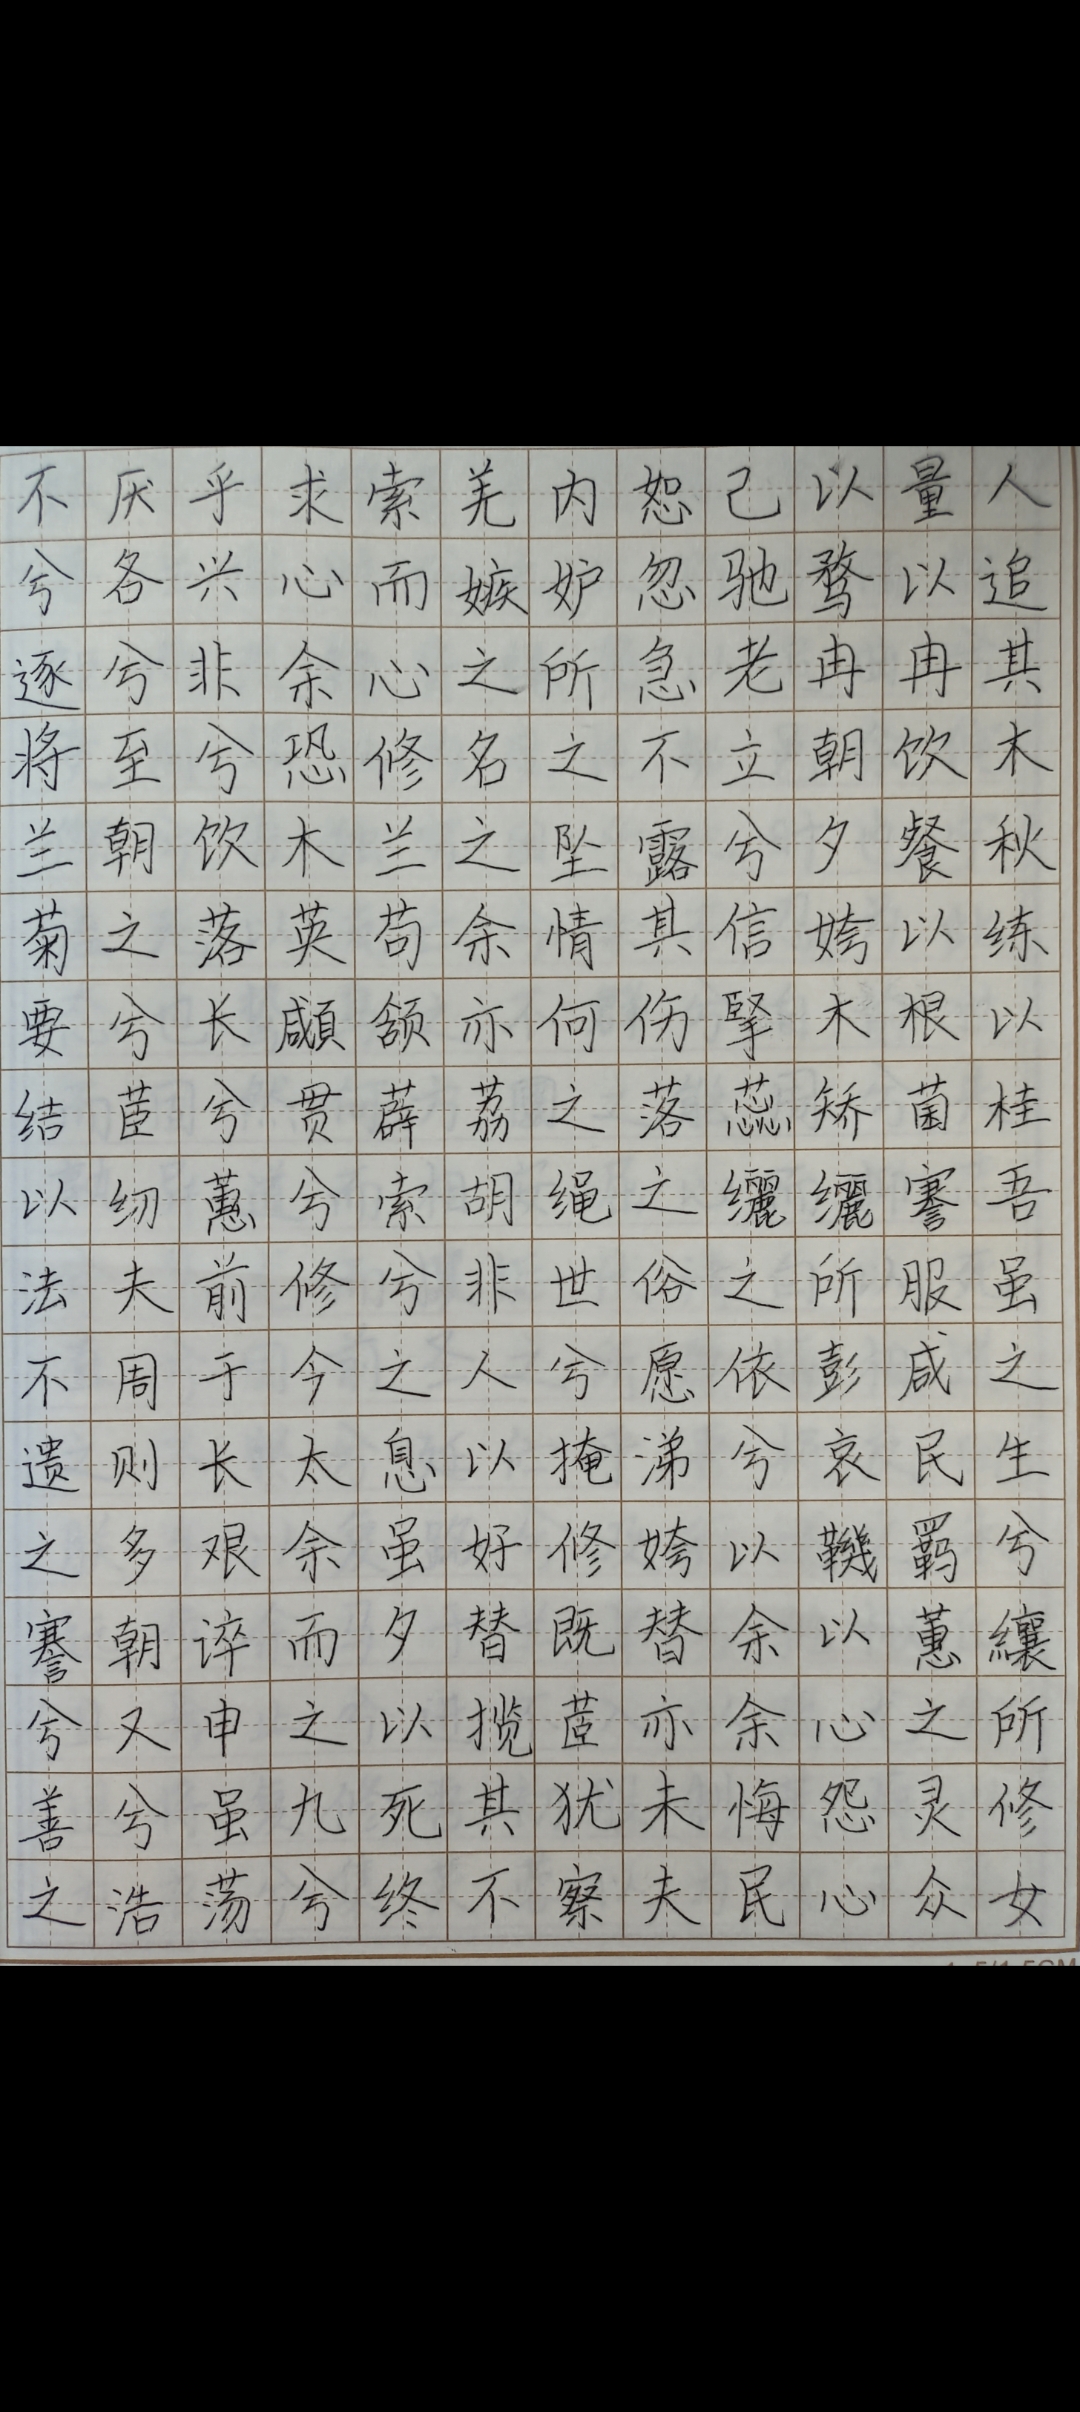 不厌乎求索羌内恕己以量人
兮各兴心而嫉妒忽驰骛以追
逐兮非余心之所急老冉冉其
将至兮恐修名之不立朝饮木
兰朝饮木兰之坠露兮夕餐秋
菊之落英苟余情其信姱以练
要兮长顑颔亦何伤掔木根以
结茝兮贯薜荔之落蕊矫菌桂
以纫蕙兮索胡绳之纚纚謇吾
法夫前修兮非世俗之所服虽
不周于今之人兮愿依彭咸之
遗则长太息以掩涕兮哀民生
之多艰余虽好修姱以鞿羁兮
謇朝谇而夕替既替余以蕙纕
兮又申之以揽茝亦余心之所
善兮虽九死其犹未悔怨灵修
之浩荡兮终不察夫民心众女